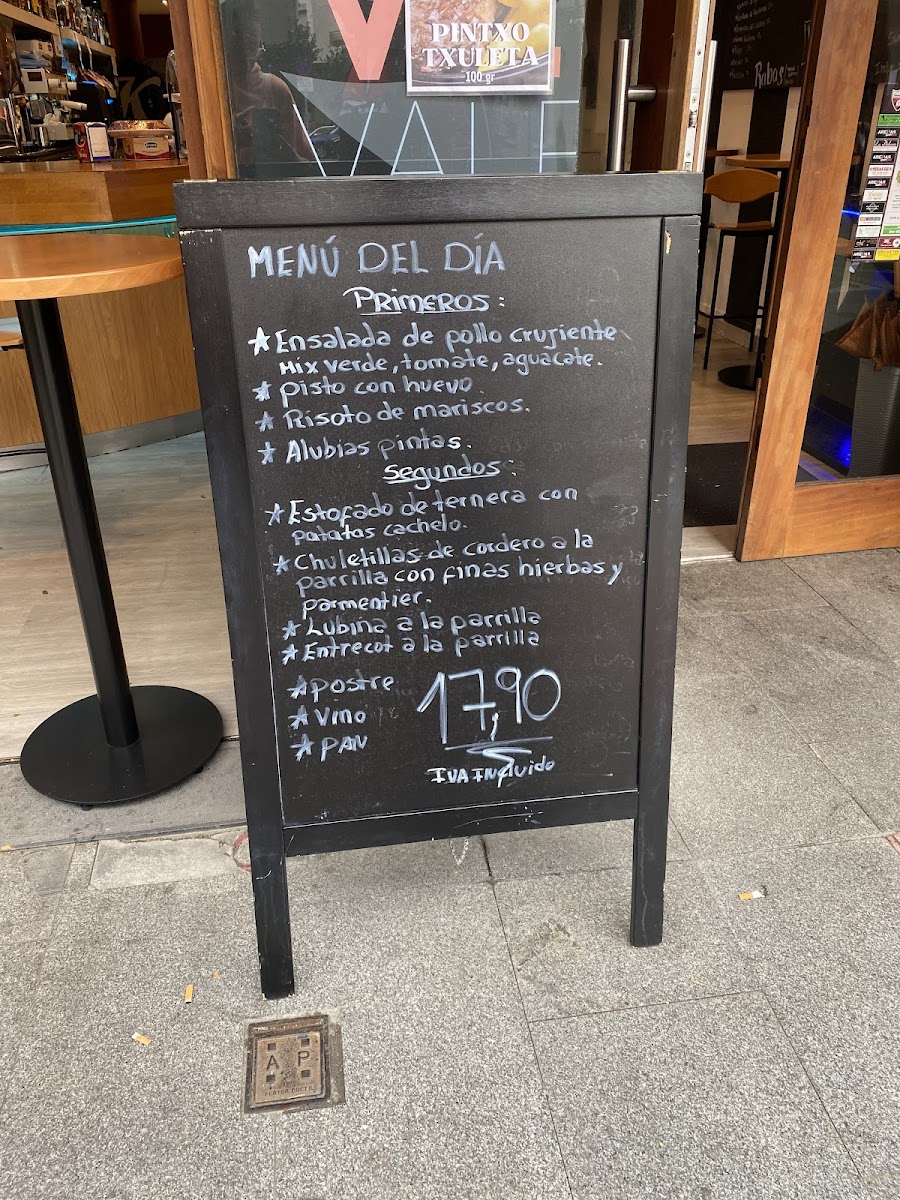 PINTXO
TXULETA
100 gr
VALE
Rabas
MENÚ DEL DÍA
PRIMEROS:
★ Ensalada de pollo crujiente
Mix verde, tomate, aguacate.
★ pisto con huevo.
★ Risoto de mariscos.
★ Alubias pintas.
Segundos:
★ Estofado de ternera con
patatas cachelo.
★ Chuletillas de cordero a la
parrilla con finas hierbas y
parmentier.
★ Lubina a la parrilla
★ Entrecot a la parrilla
★ postre
★ Vino
★ PAN
17,90
IVA INCluido
A P